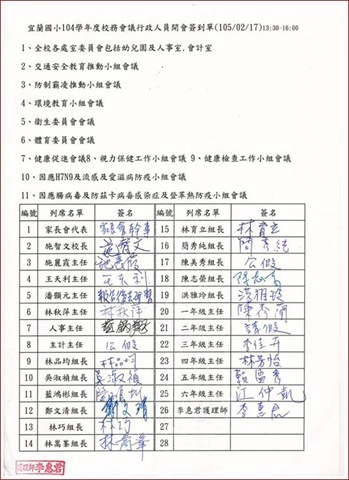 宜蘭國小104學年度校務會議行政人員開會簽到單(105/02/17)13:30-16:00
1、全校各處室委員會包括幼兒園及人事室,會計室
2、交通安全教育推動小組會議
3、防制霸凌推動小組會議
4、環境教育小組會議
5、衛生委員會會議
6、體育委員會會議
7、健康促進會議8、視力保健工作小組會議 9、健康檢查工作小組會議
10、因應H7N9及流感及愛滋病防疫小組會議
11、因應腸病毒及防茲卡病毒感染症及登革熱防疫小組會議
編號 列席名單 簽名 編號 列席名單 簽名
1 家長會代表 15 林育立組長 林育立
2 施智文校長 施智文 16 簡秀純組長 簡秀純
3 施麗霞主任 施麗霞 17 陳美秀組長 公假
4 王天利主任 王天利 18 陳志榮組長
5 潘顯元主任 19 洪雅玲組長 洪雅玲
6 林秋萍主任 林秋萍 20 一年級主任
7 人事主任 21 二年級主任 請假
8 主計主任 公假 22 三年級主任
9 林品均組長 林品均 23 四年級主任 林芳怡
10 吳淑楨組長 吳淑禎 24 五年級主任
11 藍鴻彬組長 25 六年級主任 江仲凱
12 鄭文清組長 鄭文清 26 李惠君護理師 李惠君
13 林巧組長 林巧 27
14 林嵩峯組長 28
護理師李惠君